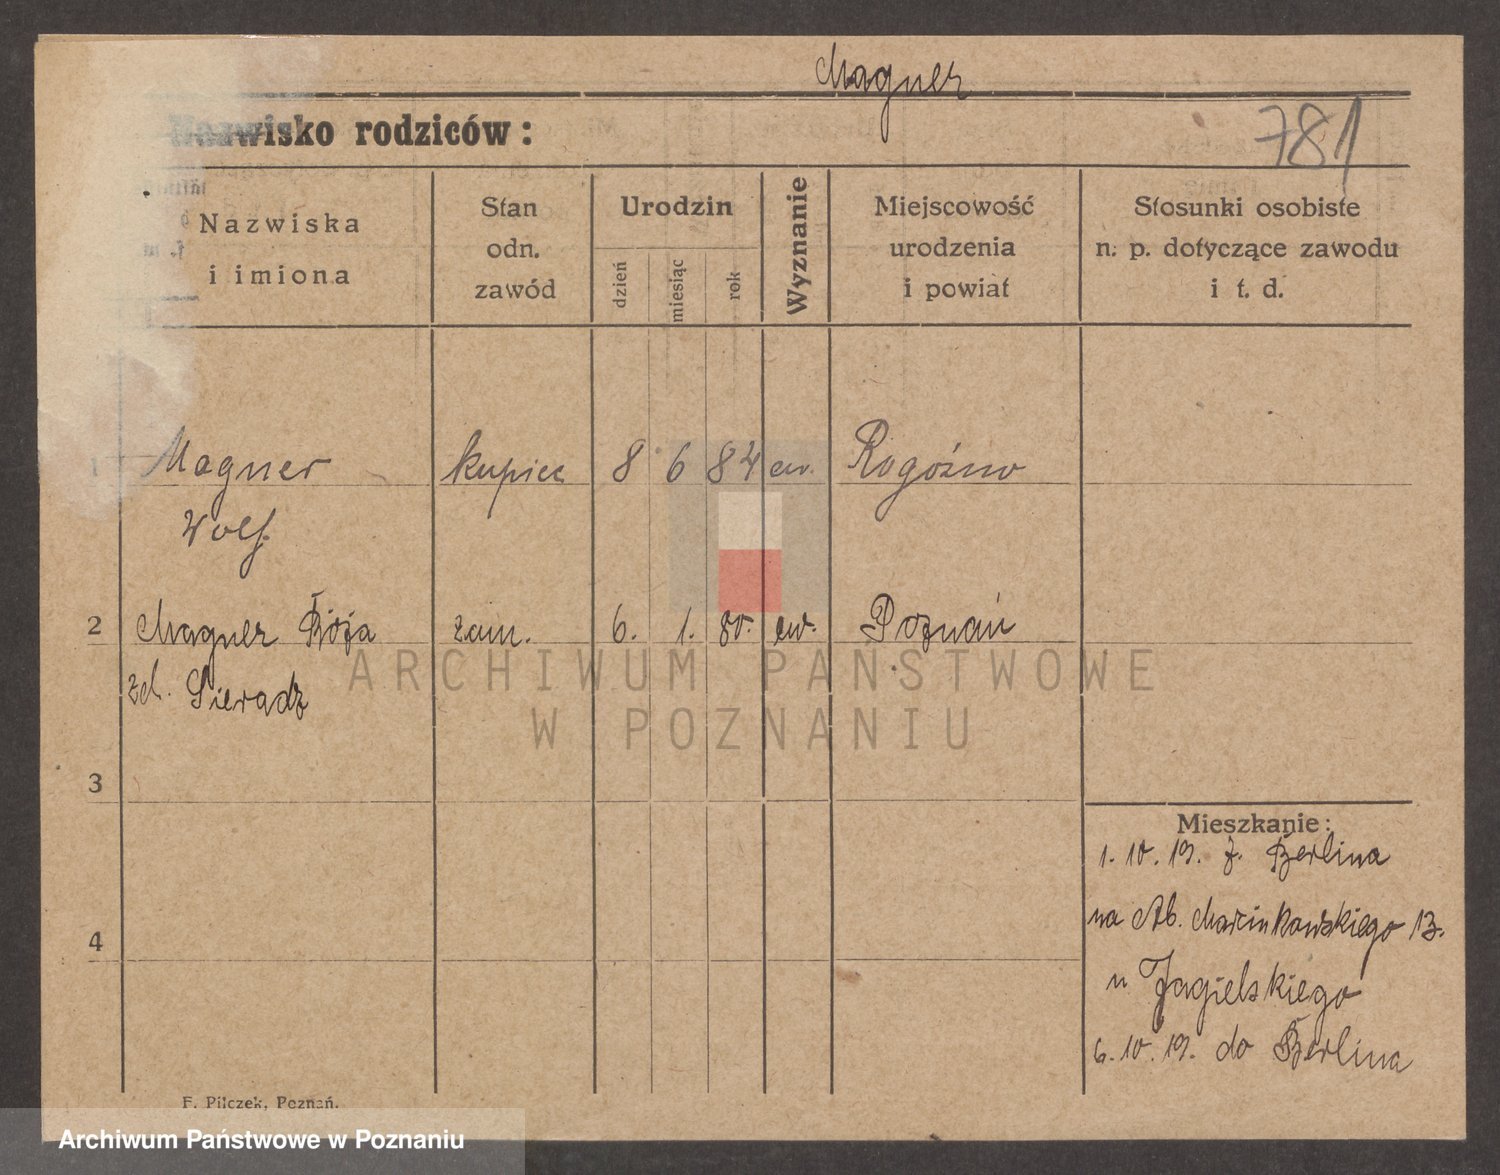 Magner
Nazwisko rodziców:
781
Nazwiska
i imiona
Stan
odn.
zawód
Urodzin
dzień
miesiąc
rok
Wyznanie
Miejscowość
urodzenia
i powiat
Stosunki osobiste
n. p. dotyczące zawodu
i t. d.
1 Magner kupiec 8 6 84 ew. Rogoźno
Wolf.
2 Magner Róża zam. 6. 1. 80. ew. Poznań
zd. Sieradz
ARCHIWUM PAŃSTWOWE
W POZNANIU
3
Mieszkanie:
1. 10. 19. z. Berlina
na Al. Marcinkowskiego 13.
4
u Jagielskiego
6. 10. 19. do Berlina
F. Pilczek, Poznań.
Archiwum Państwowe w Poznaniu